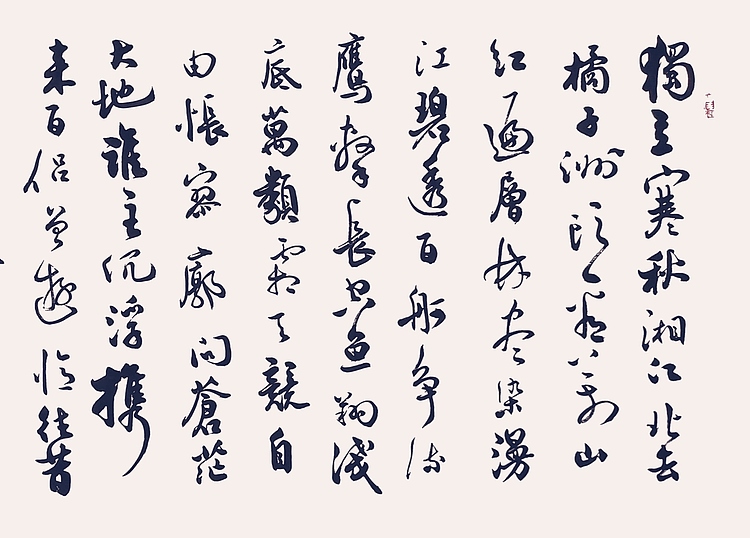 獨立寒秋湘江北去
橘子洲頭看萬山
紅遍層林盡染漫
江碧透百舸爭流
鷹擊長空魚翔淺
底萬類霜天競自
由悵寥廓問蒼茫
大地誰主沉浮攜
來百侶曾遊憶往昔